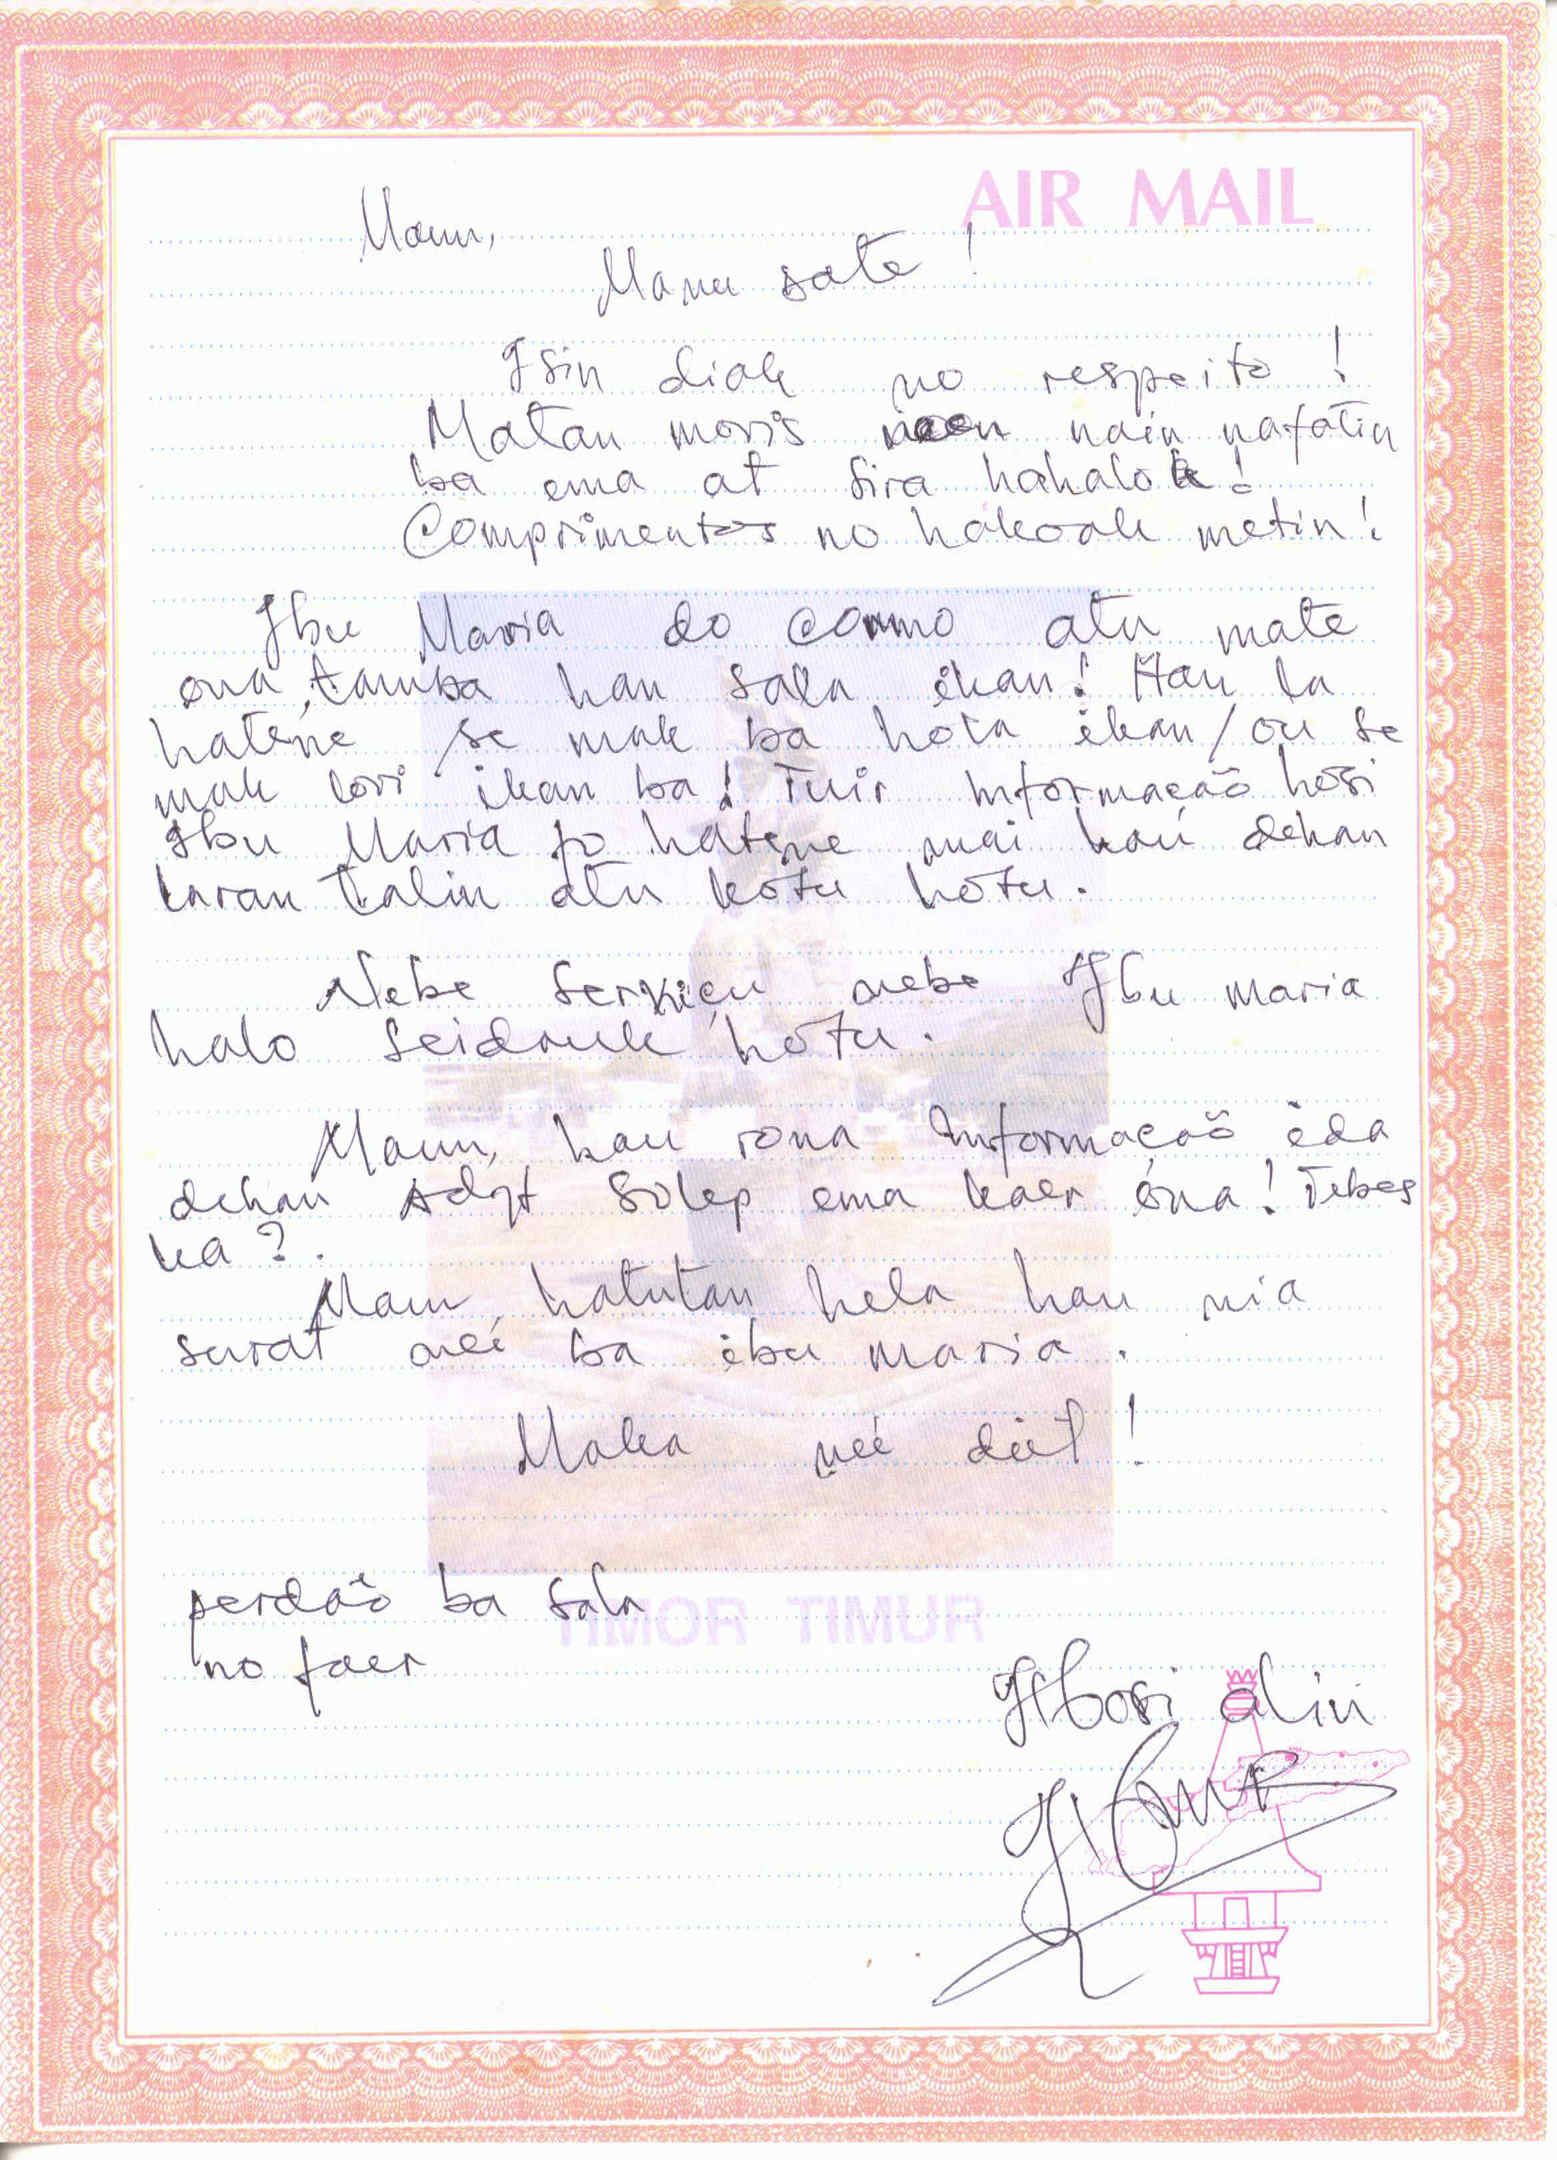 AIR MAIL
Maun,
Manu sate!
Isin diak no respeito!
Matan moris nain nafatin
ba ema at sira hahalok!
Comprimentos no hakoak metin!
Ibu Maria do Commo atu mate
ona, tamba han sala ikan! Hau la
hatene se mak ba hola ikan/ou se
mak lori ikan ba! Tuir Informação hosi
Ibu Maria fo hatene mai hau dehan
karan talin atu kotu hotu.
Nebe serviçu nebe Ibu Maria
halo seidauk hotu.
Maun, hau rona Informação ida
dehan Adjt Solep ema kaer ona! Tebes
ka?.
Maun hatutan hela hau nia
surat neé ba ibu maria.
Maka neé deit!
perdão ba sala
no faer
TIMOR TIMUR
Hosi alin